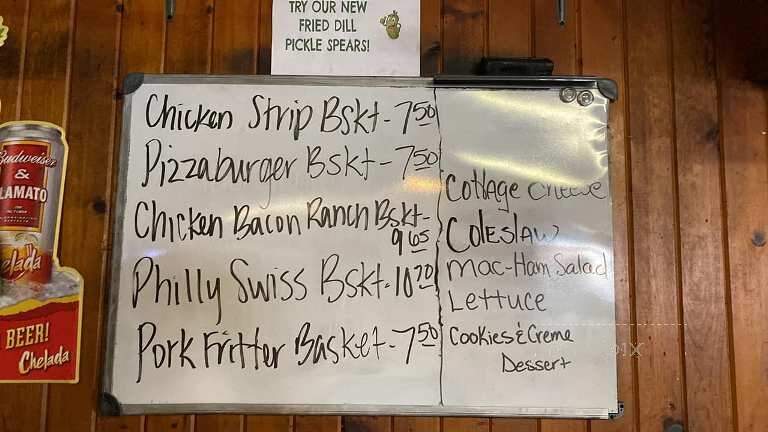 TRY OUR NEW
FRIED DILL
PICKLE SPEARS!
Chicken Strip Bskt - 7 50
Pizzaburger Bskt - 7 50
Chicken Bacon Ranch Bskt -
9 65
Philly Swiss Bskt - 10 20
Pork Fritter Basket - 7 50
Cottage Cheese
Coleslaw
Mac-Ham Salad
Lettuce
Cookies & Creme
Dessert
Budweiser
&
CLAMATO
Chelada
BEER!
Chelada